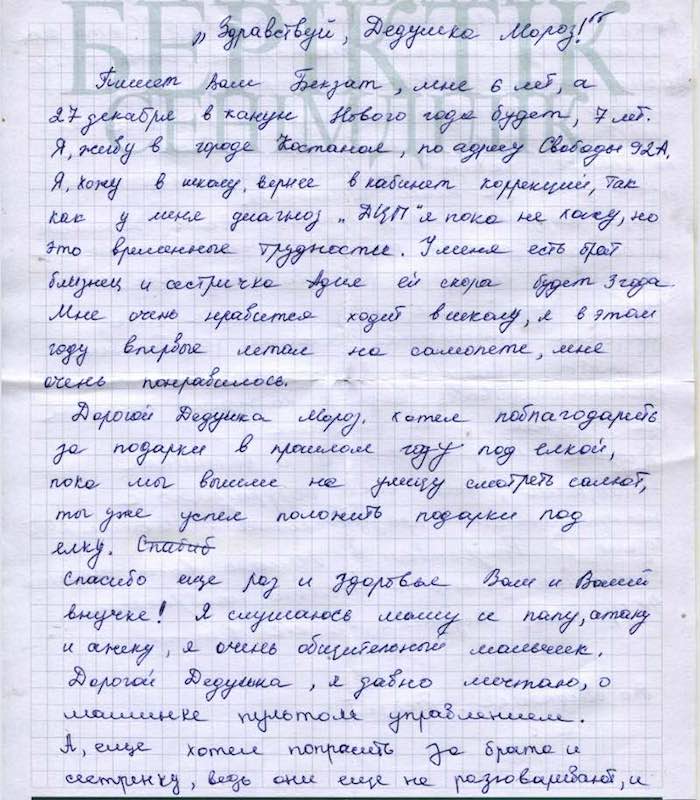 БЕРІКТІК
„Здравствуй, Дедушка Мороз!“
Пишет Вам Бекзат, мне 6 лет, а
27 декабря в канун Нового года будет, 7 лет.
Я, живу в городе Костанае, по адресу Свободы 92А,
Я, хожу в школу, вернее в кабинет коррекций, так
как у меня диагноз „ДЦП“ я пока не хожу, но
это временные трудности. У меня есть брат
близнец и сестричка Адия ей скора будет 3 года.
Мне очень нравится ходит в школу, я в этом
году впервые летал на самолете, мне
очень понравилось.
Дорогой Дедушка Мороз. хотел поблагодарить
за подарки в прошлом году под елкой,
пока мы вышли на улицу смотреть салют,
ты уже успел положить подарки под
елку. Спабиб
Спасибо еще раз и здоровье Вам и Вашей
внучке! Я слушаюсь маму и папу, атаку
и ажеку, я очень общительный мальчик.
Дорогой Дедушка, я давно мечтаю, о
машинке пультом управлением.
А, еще хотел попрасить за брата и
сестренку, ведь они еще не разговаривают, и